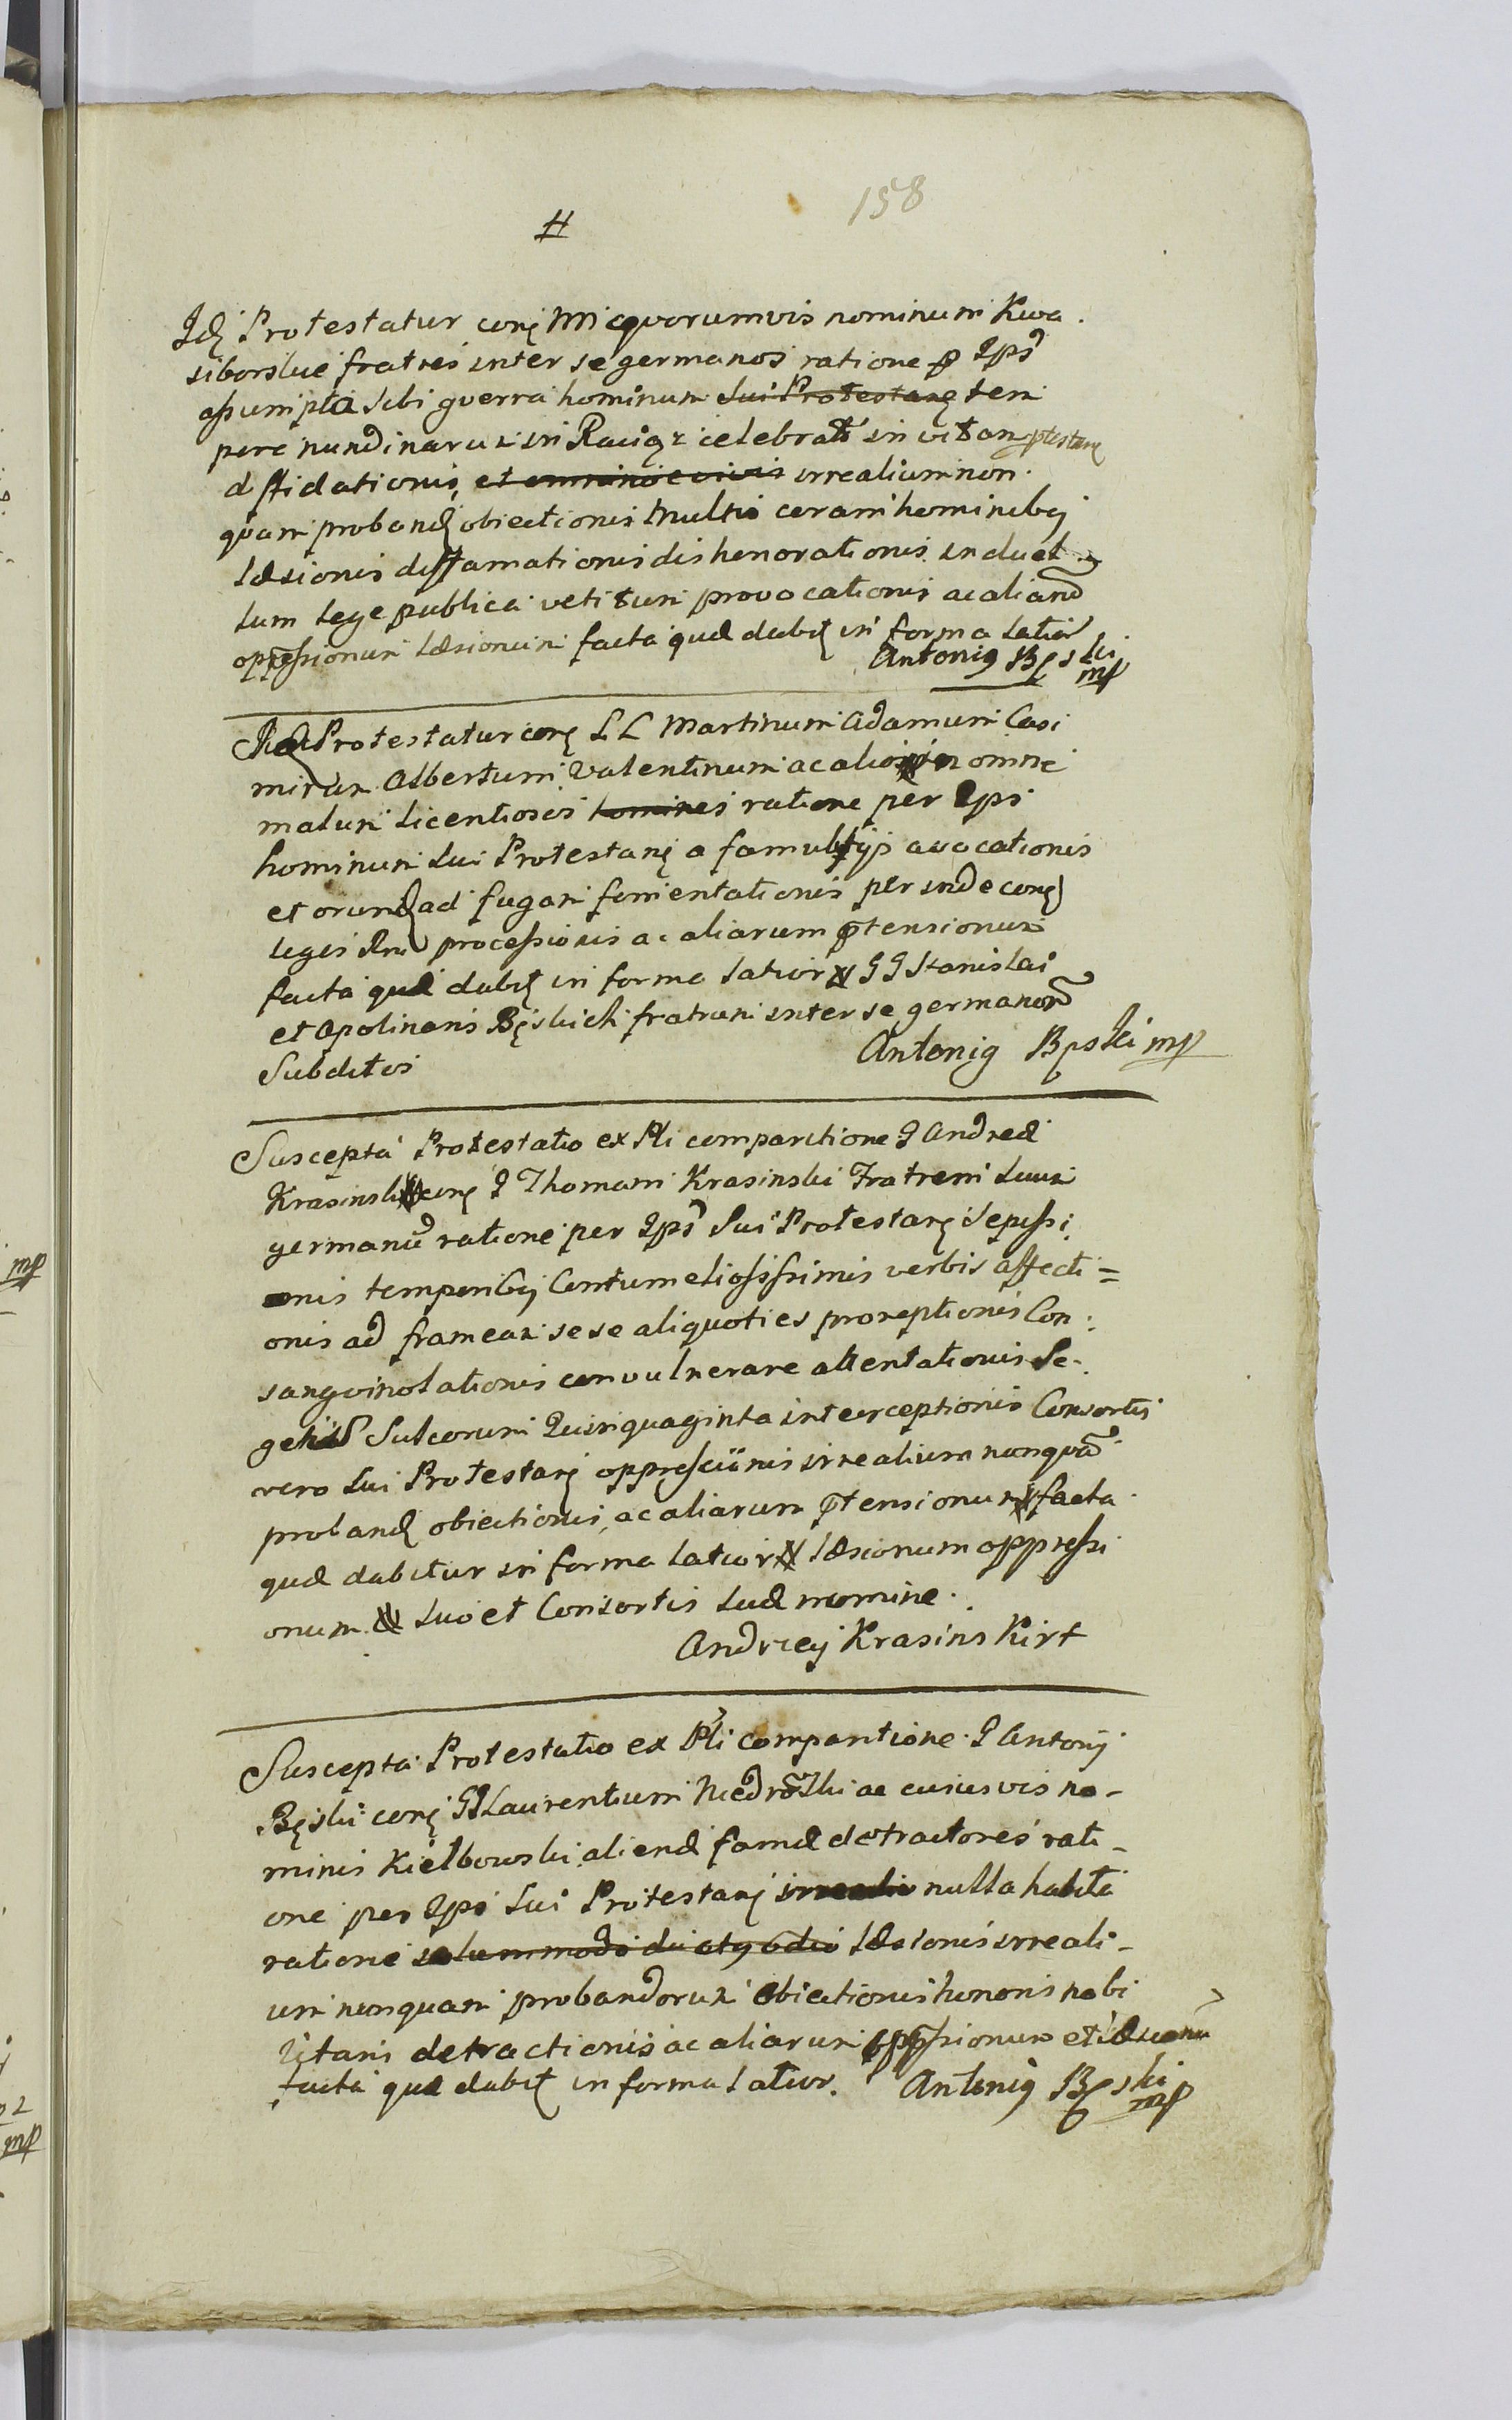 158
#
Idẽ Protestatur conṭ MM quorumvis nominum Kwa
siborskie fratres inter se germanos ratione p Ipsõ
assumpta sibi guerra hominum Sui Protestanṭ tem
pore nundinarum in Raciąz celebrat in vitam ptestanṭ
diffidationis, et irrealium non
quam probandṭ obiectionis multis coram hominibq
læsionis diffamationis dishonorationis in duel
lum lege publica vetitum provocationis ac aliarũ
oppressionum læsionum facta quæ dabiṭ in forma latior
Antonig Bęski
mp
Idẽ Protestatur conṭ LL Martinum Adamum Casi
mirum Albertum Valentinum ac alios in omne
malum licentiosos homines ratione per Ipsos
hominum Sui Protestanṭ a famulitijs avocationis
et orundṭ ad fugam fomentationis perinde conṭ
leges Rni processionis ac aliarum ptensionum
facta quæ dabiṭ in forma latior # GG Stanislai
et Apolinaris Bęskich fratrum inter se germanorũ
Subditos
Antonig Bęski mp
Suscepta Protestatio ex Pli comparitione G Andreæ
Krasinski conṭ G Thomam Krasinski Fratrem Suum
germanũ ratione per Ipsũ Sui Protestanṭ Sepissi
mis temporibq Contumeliosissimis verbis affecti=
onis ad frameam sese aliquoties proreptionis Con:
sangvinolationis convulnerare attentationis Se-
getũ Sulcorum Quinquaginta interceptionis Consortis
vero Sui Protestanṭ oppressionis irrealium nunquã
probandṭ obiectionis, ac aliarum ptensionum facta
quæ dabitur in forma latior # læsionum oppressi
onum # Suo et Consortis Suæ nomine.
Andrzey Krasinski rt
Suscepta Protestatio ex Pli comparitione G Antonij
Bęski conṭ GG Laurentium ac cuiusvis no-
minis Kiełbowski alienæ famæ detractores rati-
one per Ipsos Sui Protestanṭ irrealiũ nulla habita
ratione solummodo læsionis irreali-
um nunquam probandorum obiectionis honoris nobi
litaris detractionis ac aliarum oppressionum et læsionũ
facta quæ dabiṭ in forma latior. Antonig Bęski
mp